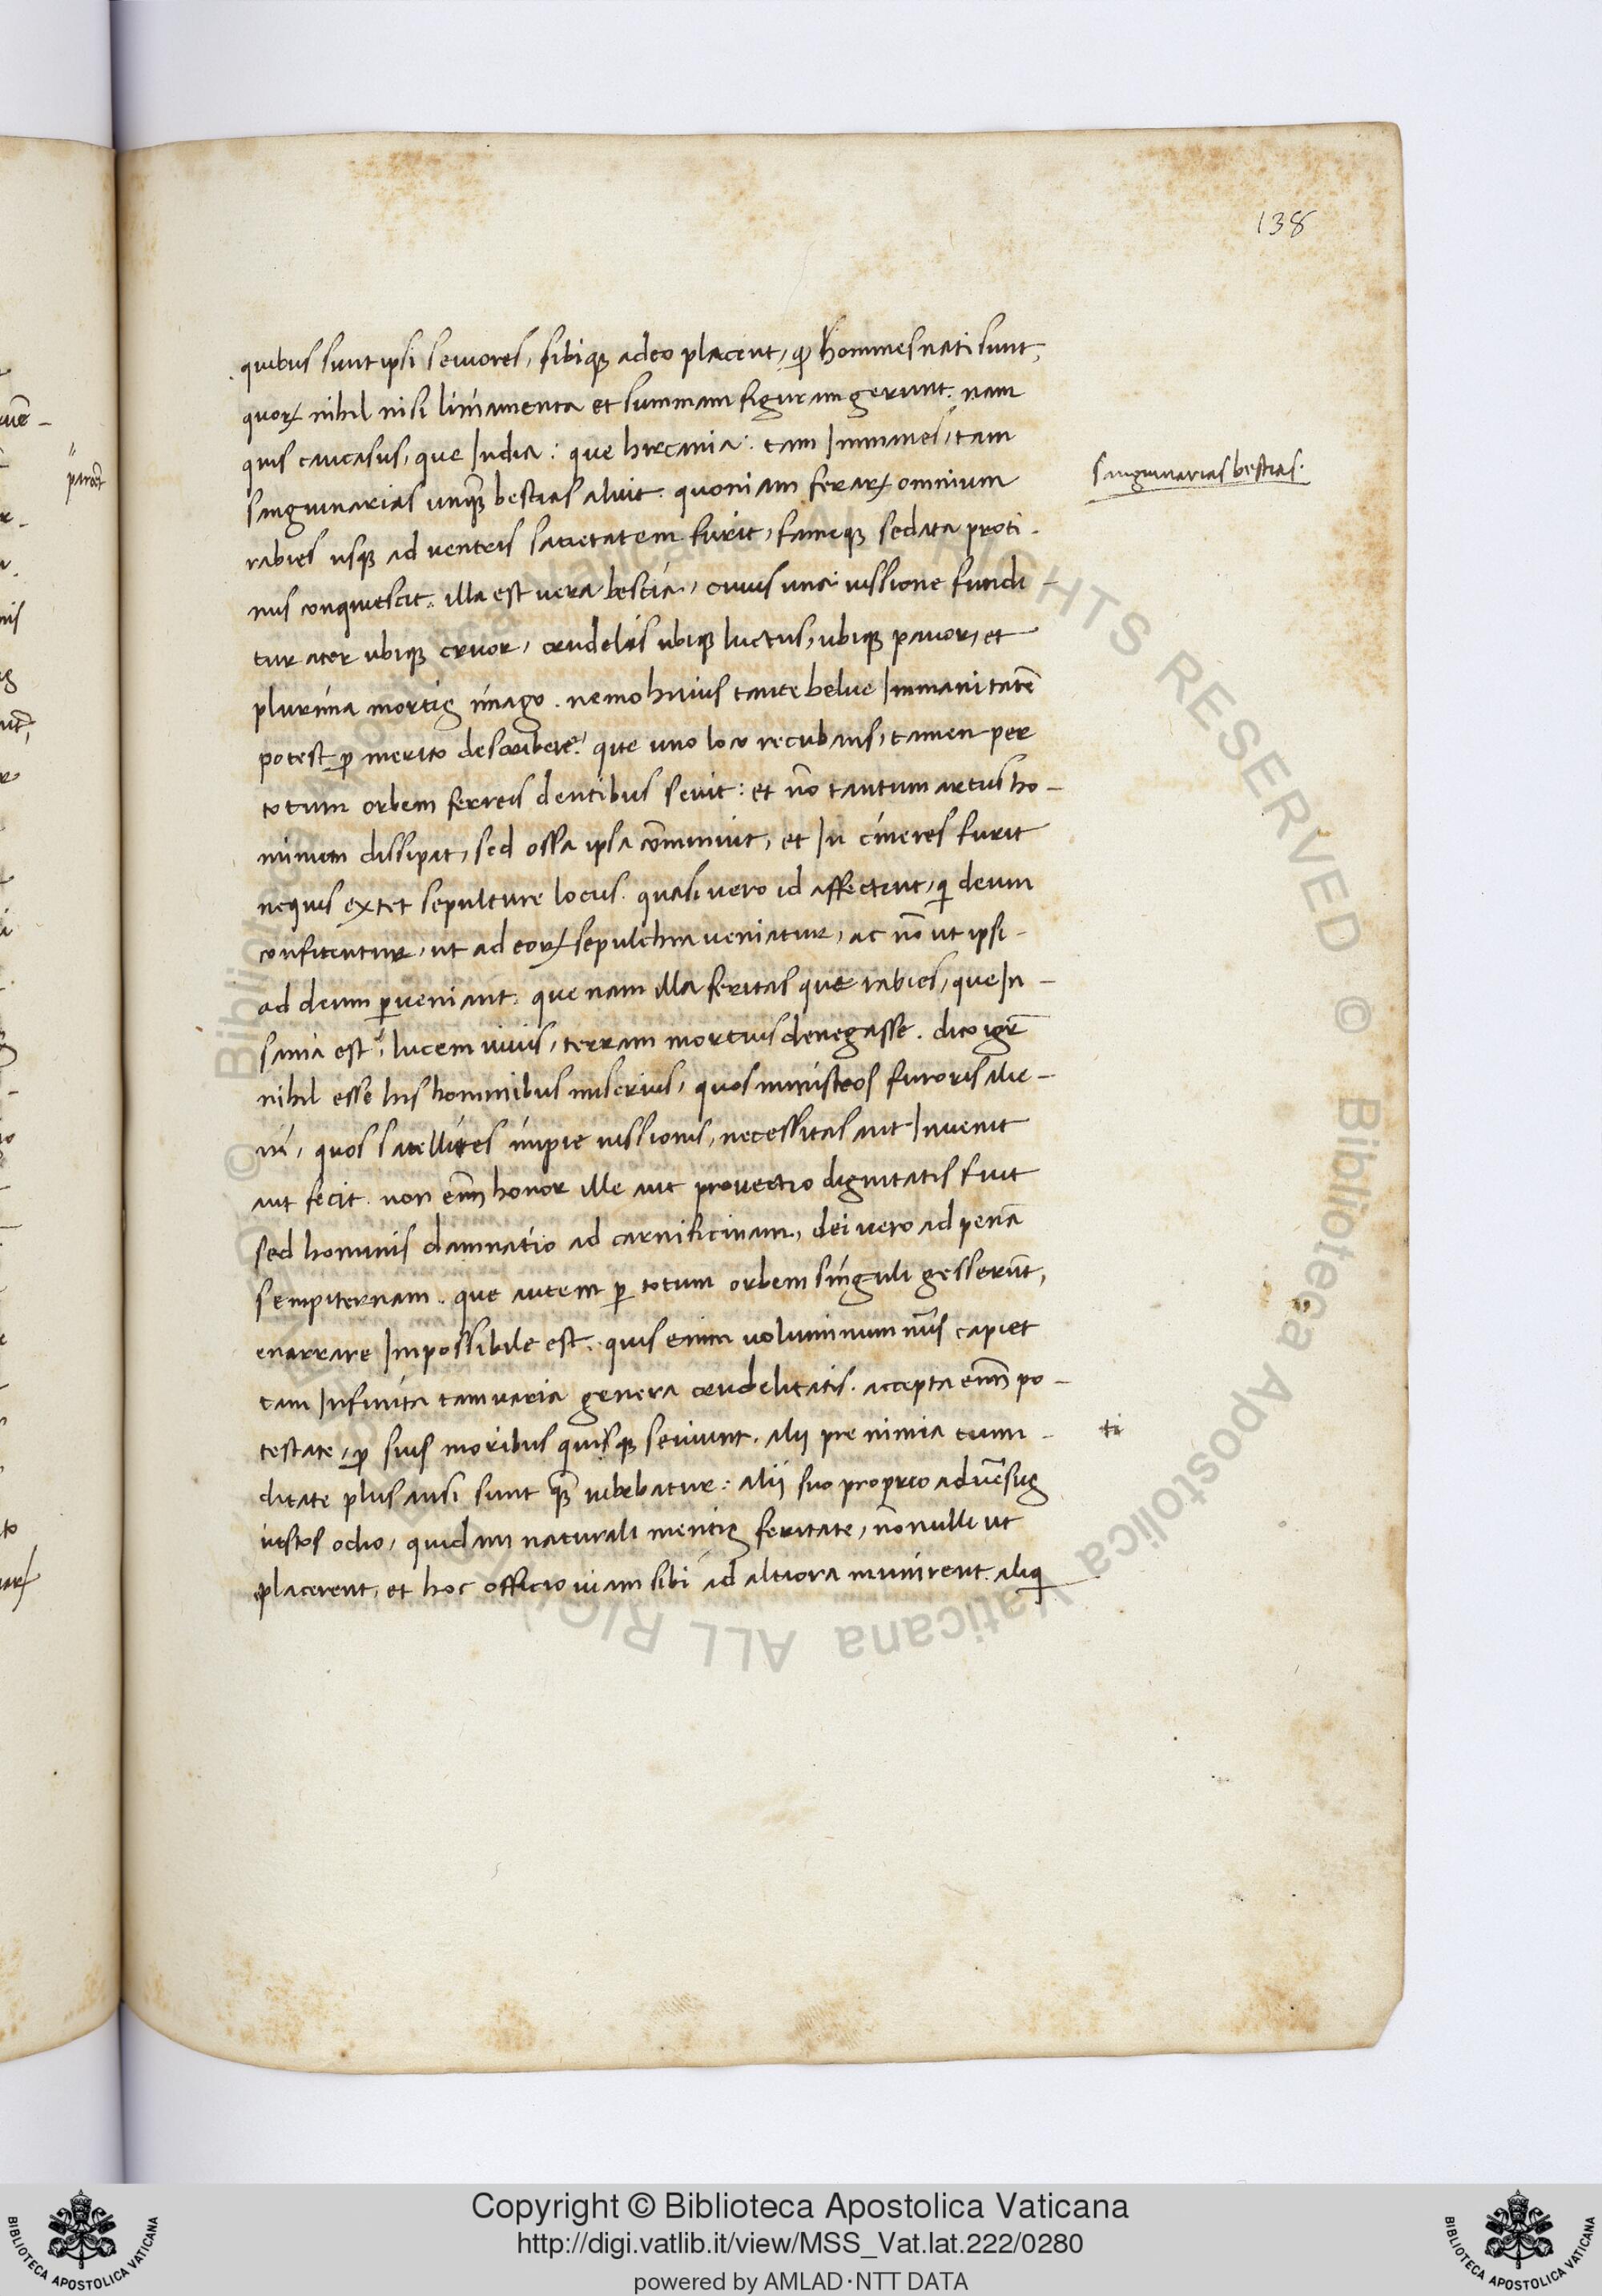 138
quibus sunt ipsi seuiores, sibiq; adeo placent, ꝙ homines nati sunt,
quoꝝ nihil nisi liniamenta et summam figuram gerunt. nam
quis caucasus, que India: que hircania: tam Immanes, tam
sanguinarias unq̃ bestias aluit. quoniam feraꝝ omnium
rabies usq; ad uentris satietatem furit, fameq; sedata proti-
nus conquiescit. illa est uera bestia, cuius una iussione fundi-
tur ater ubiq; cruor, crudelis ubiq; luctus, ubiq; pauor, et
plurima mortis imago. nemo huius tante belue Immanitatẽ
potest ꝓ merito describere: que uno loco recubans, tamen per
totum orbem ferreis dentibus seuit: et nõ tantum artus ho-
minum dissipat, sed ossa ipsa cõminuit, et In cineres furit
nequis extet sepulture locus. quasi uero id affectent, qi deum
confitentur, ut ad eoꝝ sepulchra ueniatur, ac nõ ut ipsi
ad deum ꝑueniant. que nam illa feritas que rabies, que In-
sania est, lucem uiuis, terram mortuis denegasse. dico igr̃
nihil esse his hominibus miserius, quos ministros furoris alie-
ni, quos satellites impie iussionis, necessitas aut Inuenit
aut fecit. non eni͂ honor ille aut prouectio dignitatis fuit
sed hominis damnatio ad carnificinam, dei uero ad penã
sempiternam. que autem ꝑ totum orbem singuli gesserũt,
enarrare Impossibile est. quis enim uoluminum nũs capiet
tam Infinita tam uaria genera crudelitatis. accepta eni͂ po-
testate, ꝓ suis moribus quisq; seuiunt. alij pre nimia timi-
ditate plus ausi sunt q̃ iubebatur: alij suo proprio aduẽsus
iustos odio, quidam naturali mentis feritate, nõnulli ut
placerent, et hoc officio uiam sibi ad altiora munirent. aliqi
sanguinarias bestias.
ti
Copyright © Biblioteca Apostolica Vaticana
http://digi.vatlib.it/view/MSS_Vat.lat.222/0280
powered by AMLAD·NTT DATA
BIBLIOTECA APOSTOLICA VATICANA
BIBLIOTECA APOSTOLICA VATICANA